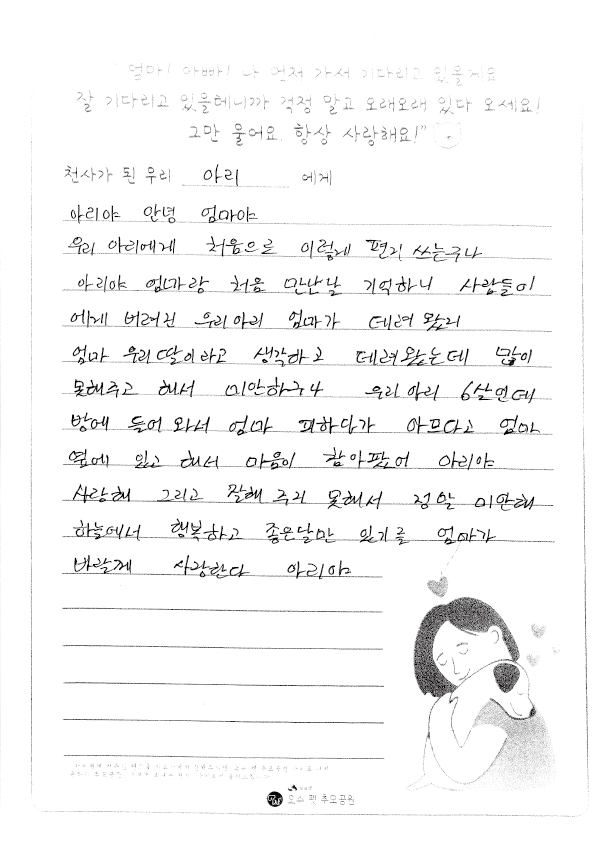 "엄마! 아빠! 나 먼저 가서 기다리고 있을게요
잘 기다리고 있을테니까 걱정 말고 오래오래 있다 오세요!
그만 울어요. 항상 사랑해요!"
천사가 된 우리 아리 에게
아리야 안녕 엄마야
우리 아리에게 처음으로 이렇게 편지 쓰는구나
아리야 엄마랑 처음 만난날 기억하니 사람들이
에게 버려진 우리아리 엄마가 데려 왔지
엄마 우리딸이라고 생각하고 데려왔는데 많이
못해주고 해서 미안하구나 우리 아리 6살인데
방에 들어 와서 엄마 피하다가 아프다고 엄마
옆에 있고 해서 마음이 참아팠어 아리야
사랑해 그리고 잘해 주지 못해서 정말 미안해
하늘에서 행복하고 좋은날만 있기를 엄마가
바랄께 사랑한다 아리야
오수 펫 추모공원